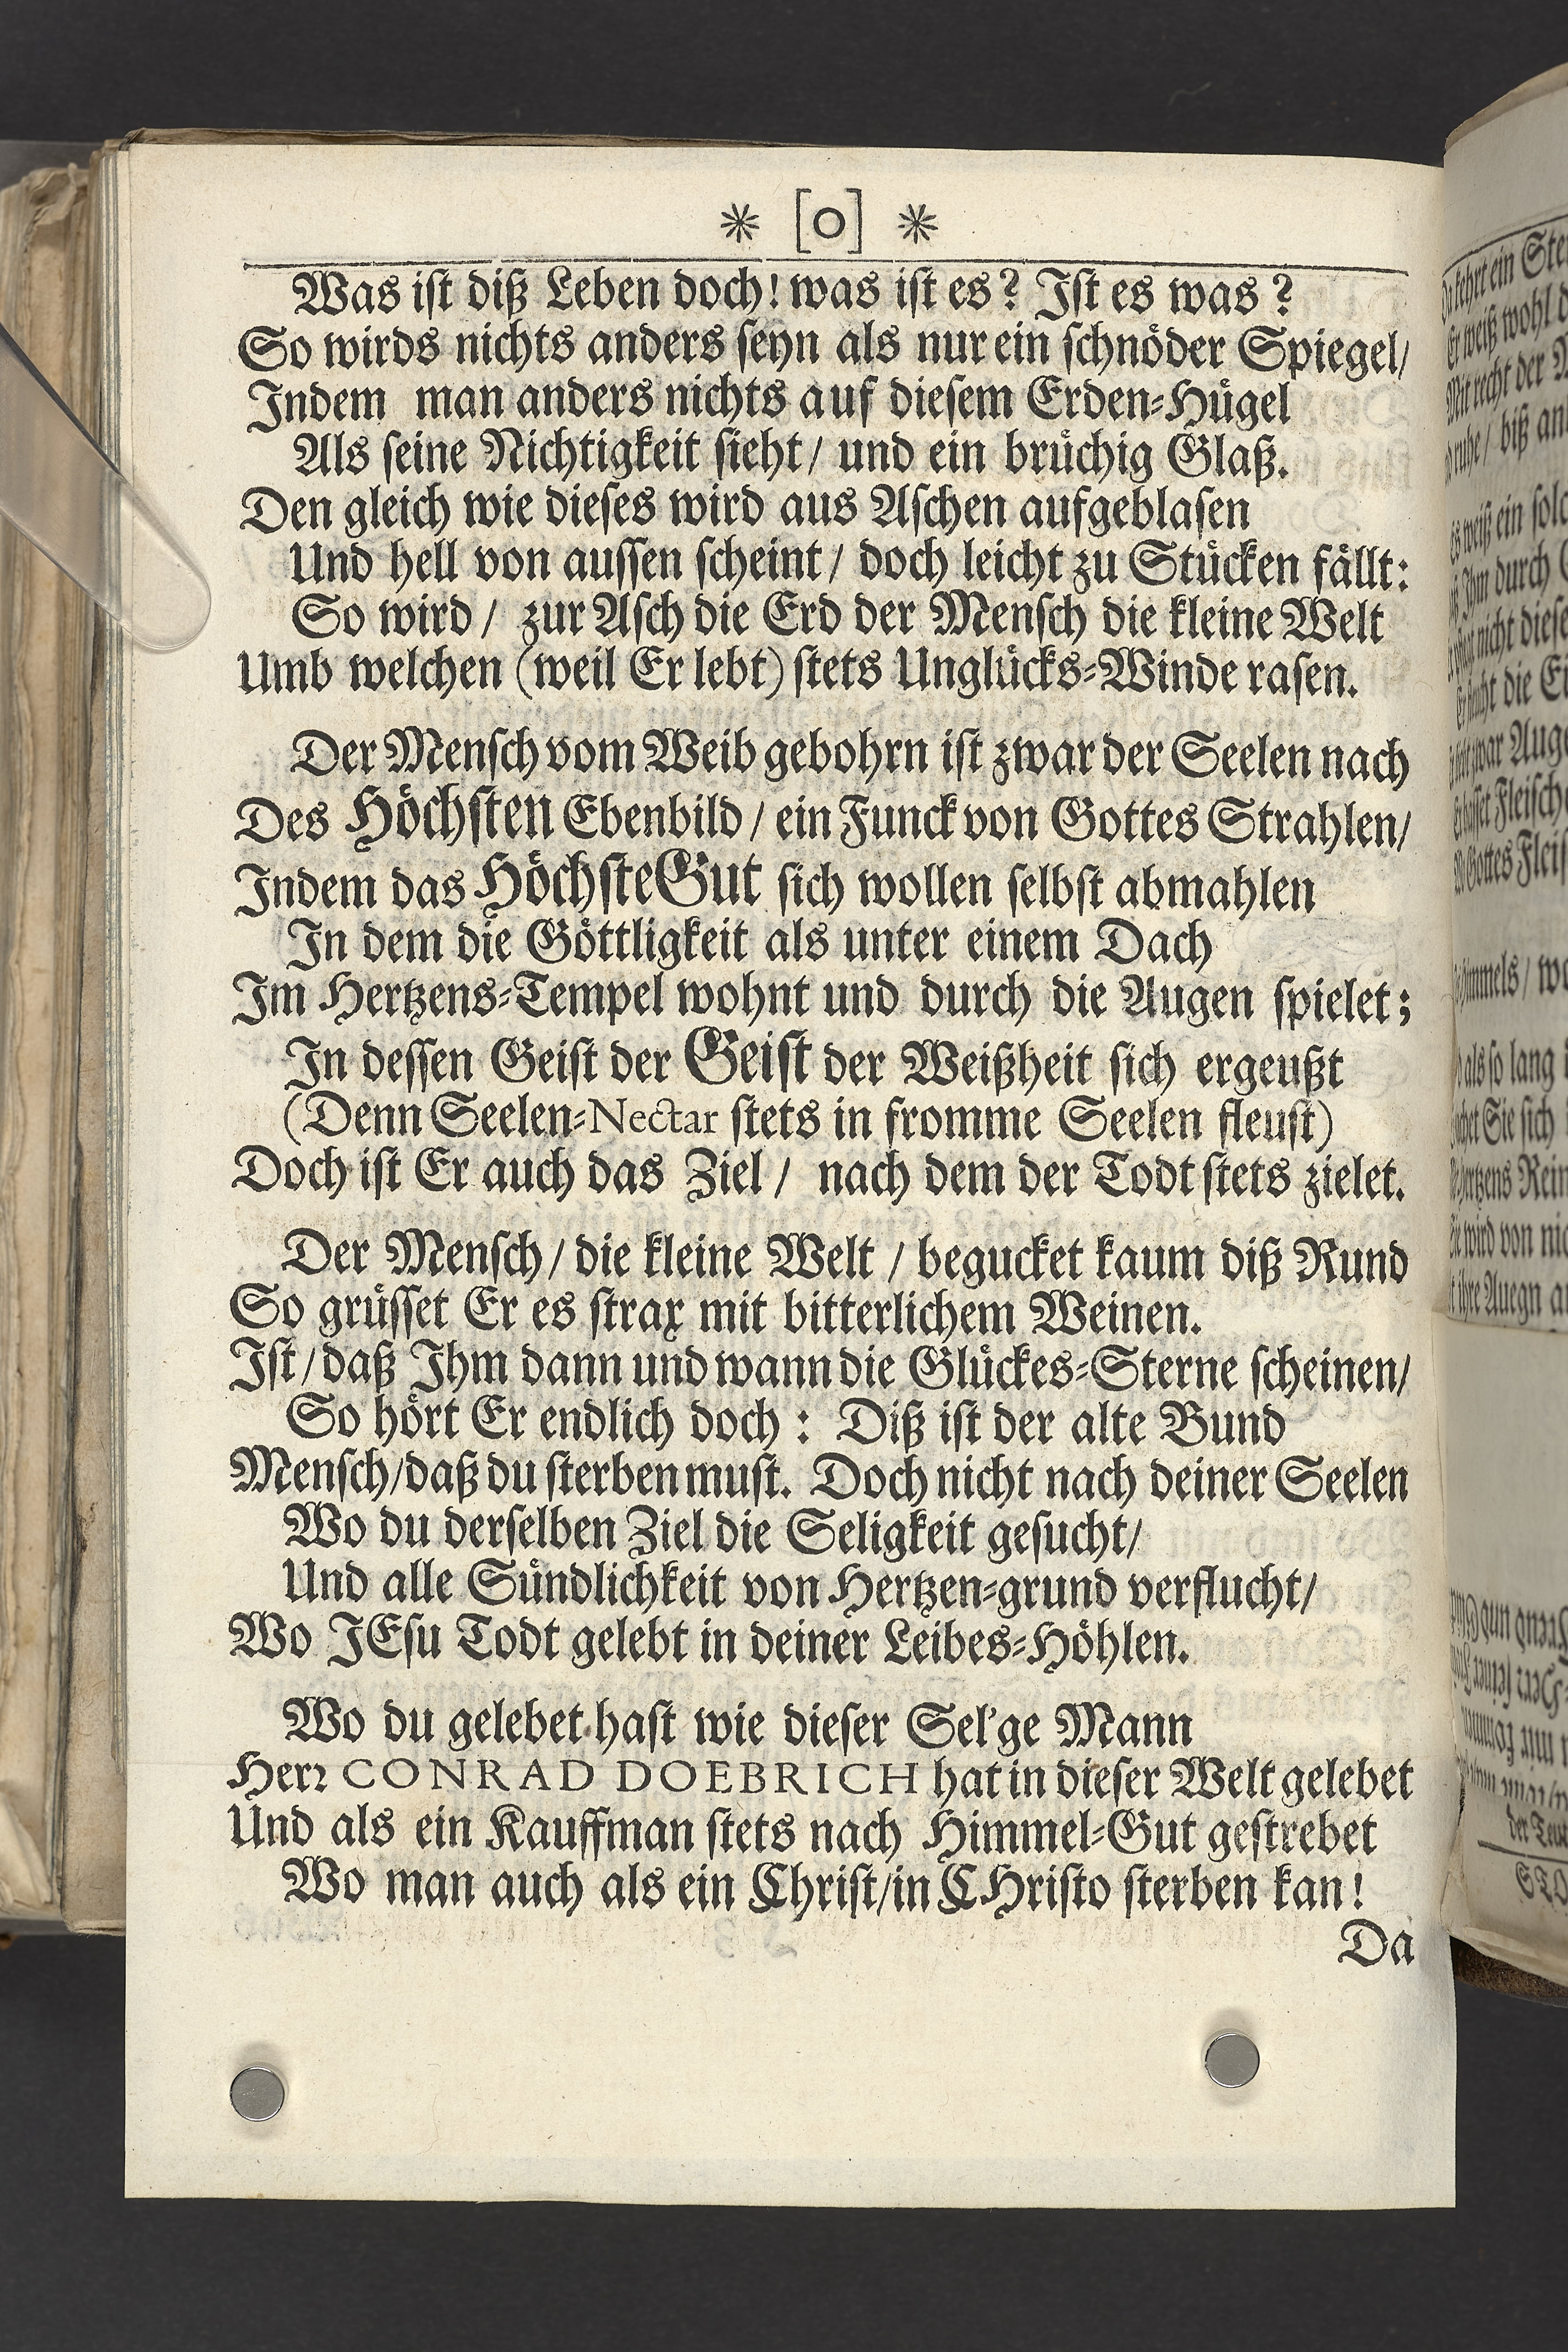 * [o] *
Was ist diß Leben doch! was ist es? Ist es was?
So wirds nichts anders seyn als nur ein schnöder Spiegel/
Indem man anders nichts auf diesem Erden-Hügel
Als seine Nichtigkeit sieht/ und ein brüchig Glaß.
Den gleich wie dieses wird aus Aschen aufgeblasen
Und hell von aussen scheint/ doch leicht zu Stücken fällt:
So wird/ zur Asch die Erd der Mensch die kleine Welt
Umb welchen (weil Er lebt) stets Unglücks-Winde rasen.
Der Mensch vom Weib gebohrn ist zwar der Seelen nach
Des Höchsten Ebenbild/ ein Funck von Gottes Strahlen/
Indem das Höchste Gut sich wollen selbst abmahlen
In dem die Göttligkeit als unter einem Dach
Im Hertzens-Tempel wohnt und durch die Augen spielet;
In dessen Geist der Geist der Weißheit sich ergeußt
(Denn Seelen-Nectar stets in fromme Seelen fleust)
Doch ist Er auch das Ziel/ nach dem der Todt stets zielet.
Der Mensch/ die kleine Welt/ begucket kaum diß Rund
So grüsset Er es strax mit bitterlichem Weinen.
Ist/ daß Ihm dann und wann die Glückes-Sterne scheinen/
So hört Er endlich doch: Diß ist der alte Bund
Mensch/ daß du sterben must. Doch nicht nach deiner Seelen
Wo du derselben Ziel die Seligkeit gesucht/
Und alle Sündlichkeit von Hertzen-grund verflucht/
Wo JEsu Todt gelebt in deiner Leibes-Höhlen.
Wo du gelebet hast wie dieser Sel'ge Mann
Herr CONRAD DOEBRICH hat in dieser Welt gelebet
Und als ein Kauffman stets nach Himmel-Gut gestrebet
Wo man auch als ein Christ/ in CHristo sterben kan!
Da